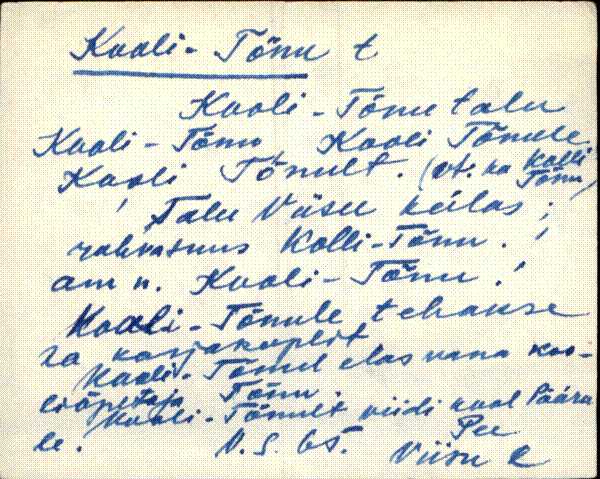 Kooli-Tõnu t
Kooli-Tõnu talu
Kooli-Tõnu Kooli Tõnule
Kooli Tõnult. (vt. ka Kolli Tõnu)
Talu Viisu külas;
rahvasuus Kolli-Tõnu.
am n. Kooli-Tõnu.
Kooli-Tõnule tehakse
ka karjakoplit
Kooli-Tõnul elas vana koo-
liõpetaja Tõnu.
Kooli-Tõnult viidi kool Päära
le.
V. S. 65. Pee
Viisu k